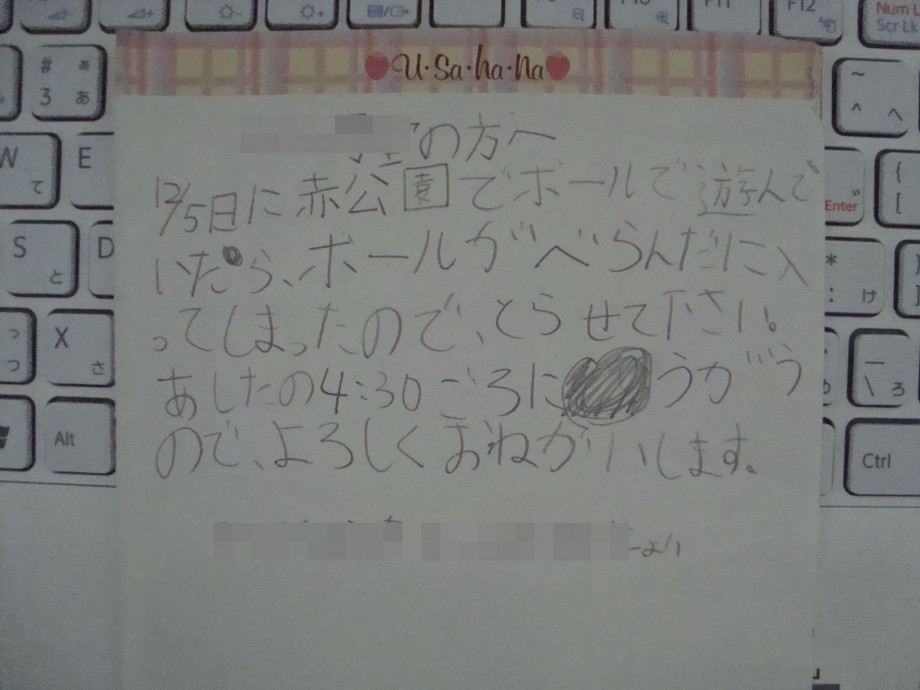 U・Sa・ha・na
の方へ
12/5日に赤公園でボールで遊んで
いたら、ボールがべらんだに入
ってしまったので、とらせて下さい。
あしたの4:30ごろにうがう
ので、よろしくおねがいします。
より
F12
Num L
Scr Lk
# ぁ
3 あ
~
^ へ
W
て
E
{
[
Enter
S
と
D
*
: け
っ
つ
X
さ
_
\ ろ
Alt
Ctrl